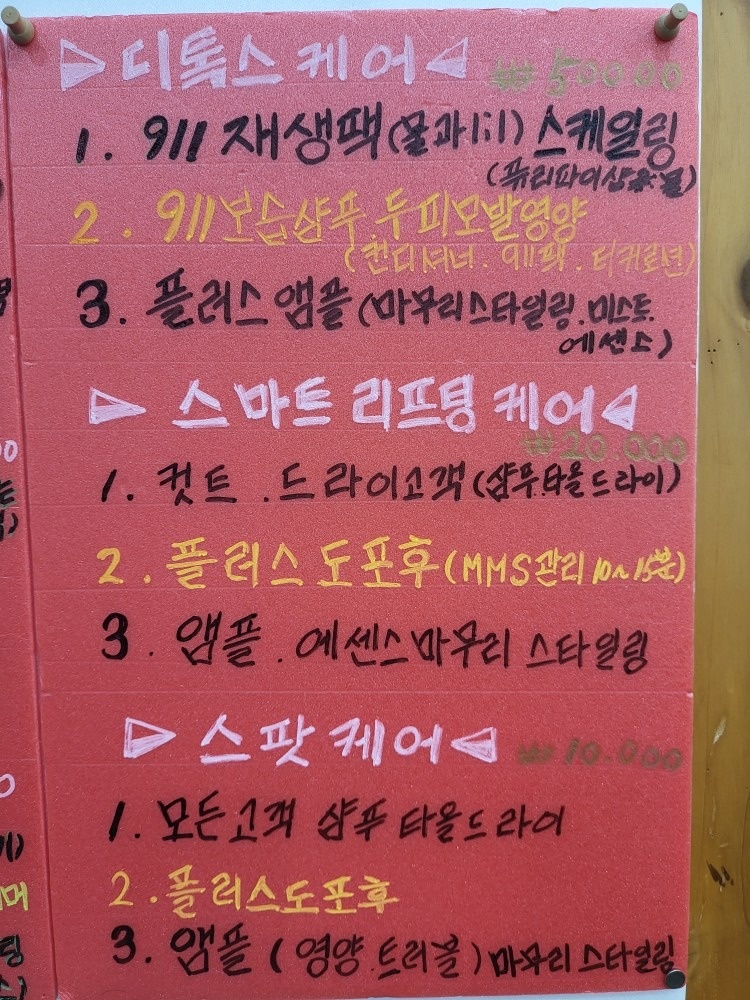 ▷디톡스케어◁ ₩50000
1. 911 재생팩(물과1:1) 스케일링
(퓨리파이샴푸.물)
2. 911보습샴푸.두피모발영양
(컨디셔너.911팩.티커로션)
3. 플러스앰플(마무리스타일링.미스트.
에센스)
▷스마트리프팅케어◁
₩20.000
1. 컷트.드라이고객(샴푸.타올드라이)
2. 플러스도포후(MMS관리10~15분)
3. 앰플.에센스마무리 스타일링
▷스팟케어◁ ₩10.000
1. 모든고객 샴푸 타올드라이
2. 플러스도포후
3. 앰플(영양.트러블)마무리스타일링